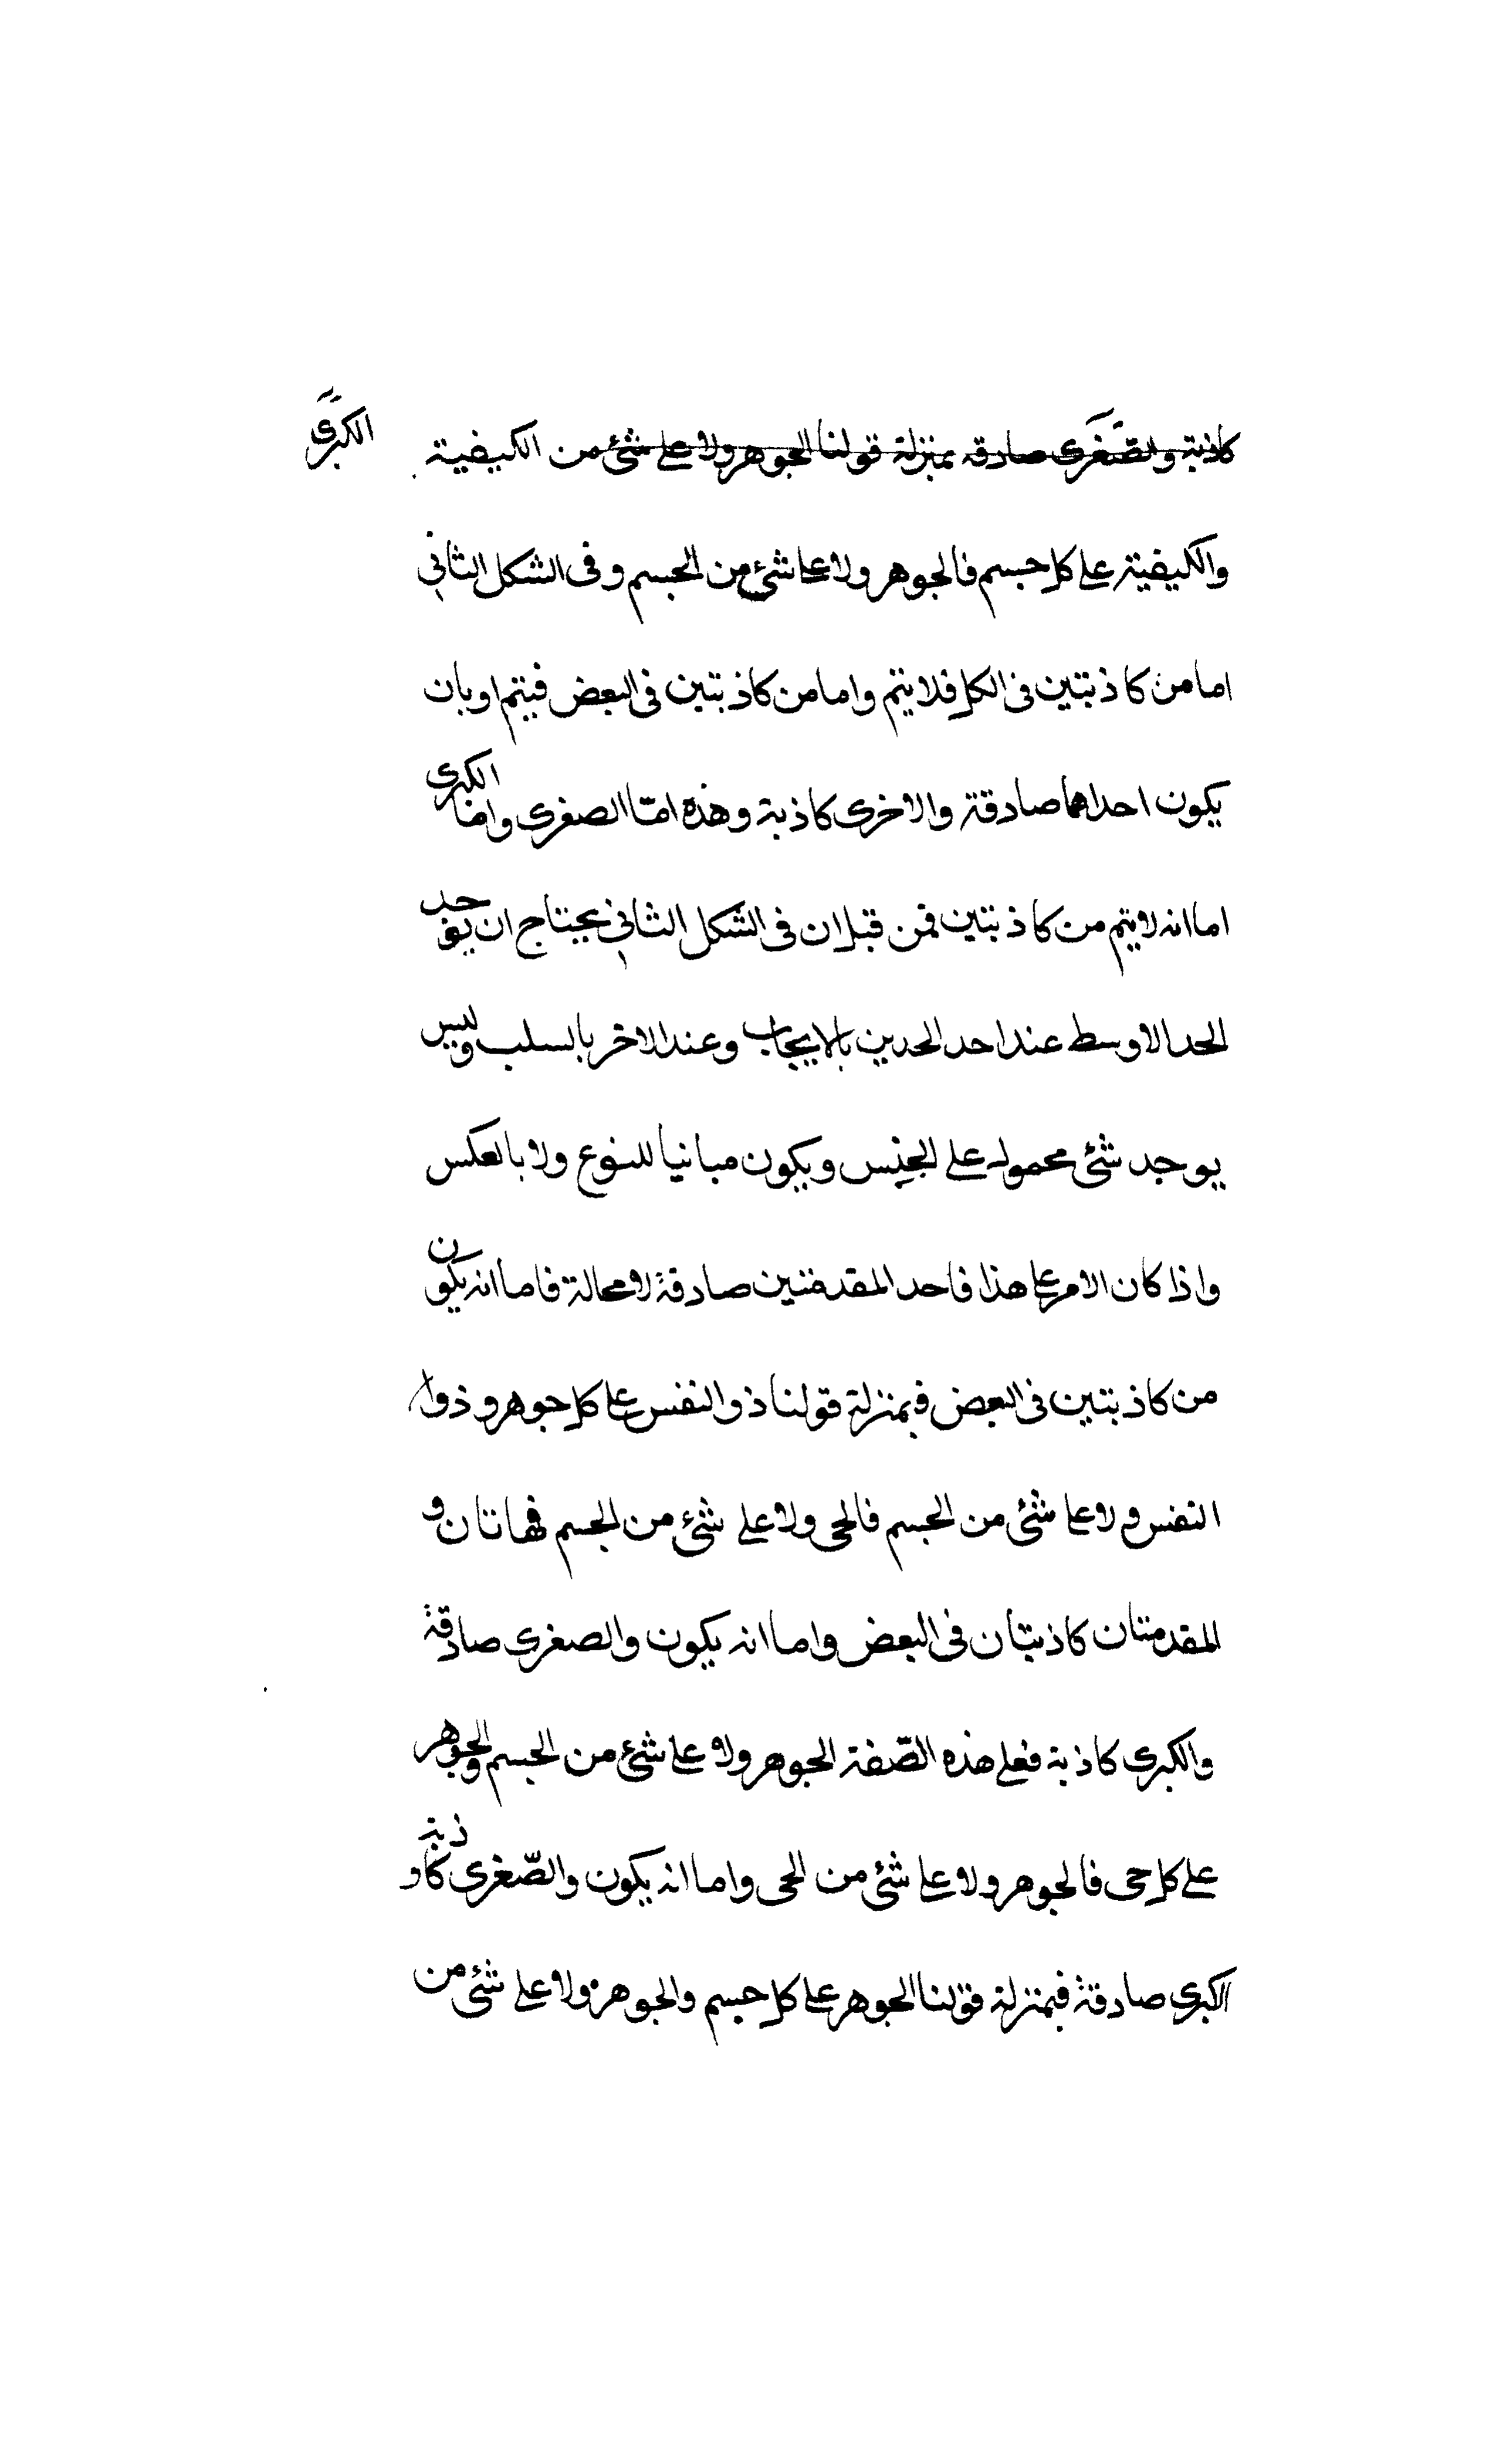 كاذبة والصّغرى صادقه بمنزلة قولنا الجوهر ولا على شئ من الكيفية الكبرى
والكيفية على كل جسم فالجوهر ولا على شئ من الجسم وفى الشكل الثانى
اما من كاذبتين فى الكل فلا يتم واما من كاذبتين فى البعض فيتم او بان
يكون احداهما صادقة والاخرى كاذبة وهذه امّا الصغرى واما الكبرى
اما انه لا يتم من كاذبتين فمن قبل ان فى الشكل الثانى يحتاج ان يوجد
الحد الاوسط عند احد الحدين بالايجاب وعند الاخر بالسلب وليس
يوجد شئ محمول على الجنس ويكون مبانيا للنوع ولا بالعكس
واذا كان الامر على هذا فاحد المقدمتين صادقة لا محالة فاما انه يكون
من كاذبتين فى البعض فبمنزلة قولنا ذو النفس على كل جوهر وذوا
النفس ولا على شئ من الجسم فالحى ولا على شئ من الجسم فهاتان و
المقدمتان كاذبتان فى البعض واما انه يكون والصغرى صادقة
والكبرى كاذبة فعلى هذه الصّفة الجوهر ولا على شئ من الجسم والجوهر
على كل حى فالجوهر ولا على شئ من الحى واما انه يكون والصّغرى كاذبة و
الكبرى صادقة فبمنزلة قولنا الجوهر على كل جسم والجوهر ولا على شئ من